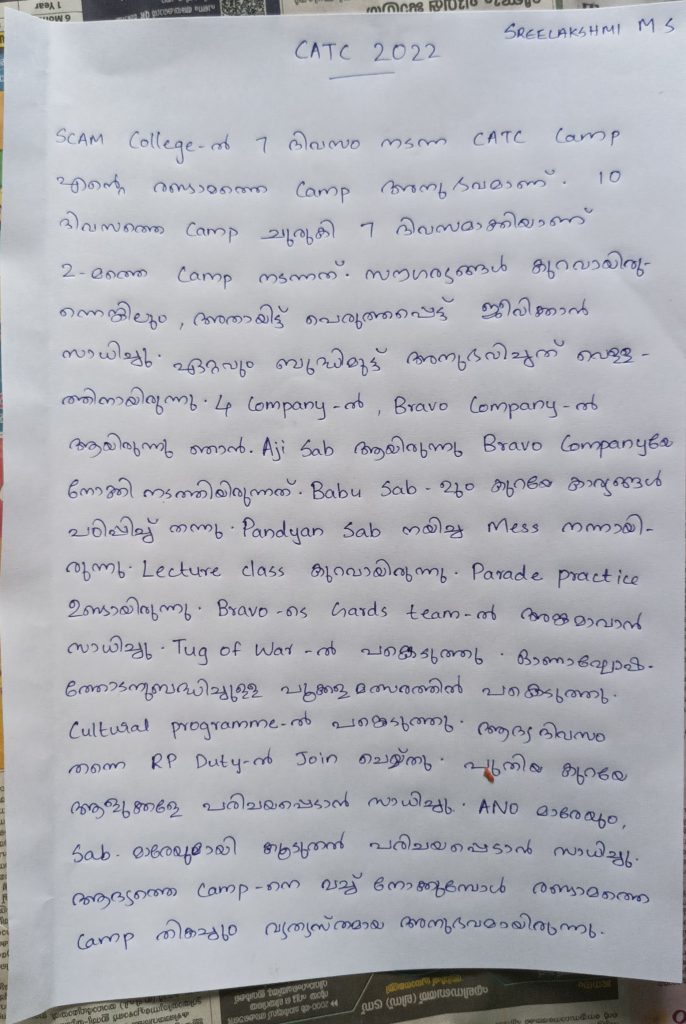 SREELAKSHMI M S
CATC 2022
SCAM College-ൽ 7 ദിവസം നടന്ന CATC Camp
എന്റെ രണ്ടാമത്തെ Camp അനുഭവമാണ്. 10
ദിവസത്തെ Camp ചുരുക്കി 7 ദിവസമാക്കിയാണ്
2-മത്തെ Camp നടന്നത്. സൗകര്യങ്ങൾ കുറവായിരു-
ന്നെങ്കിലും, അതായിട്ട് പൊരുത്തപ്പെട്ട് ജീവിക്കാൻ
സാധിച്ചു. ഏറ്റവും ബുദ്ധിമുട്ട് അനുഭവിച്ചത് വെള്ള-
ത്തിനായിരുന്നു. 4 Company-ൽ, Bravo Company-ൽ
ആയിരുന്നു ഞാൻ. Aji Sab ആയിരുന്നു Bravo Companyയെ
നോക്കി നടത്തിയിരുന്നത്. Babu Sab-ഉം കുറയെ കാര്യങ്ങൾ
പഠിപ്പിച്ച് തന്നു. Pandyan Sab നയിച്ച Mess നന്നായി-
രുന്നു. Lecture class കുറവായിരുന്നു. Parade practice
ഉണ്ടായിരുന്നു. Bravo-ടെ Gards team-ൽ അംഗമാവാൻ
സാധിച്ചു. Tug of War-ൽ പങ്കെടുത്തു. ഓണാഘോഷ-
ത്തോടനുബന്ധിച്ചുള്ള പൂക്കള മത്സരത്തിൽ പങ്കെടുത്തു.
Cultural programme-ൽ പങ്കെടുത്തു. ആദ്യ ദിവസം
തന്നെ RP Duty-ൽ Join ചെയ്തു. പുതിയ കുറയെ
ആളുകളെ പരിചയപ്പെടാൻ സാധിച്ചു. ANO മാരേയും,
Sab-മാരേയുമായി കൂടുതൽ പരിചയപ്പെടാൻ സാധിച്ചു.
ആദ്യത്തെ Camp-നെ വച്ച് നോക്കുമ്പോൾ രണ്ടാമത്തെ
Camp തികച്ചും വ്യത്യസ്തമായ അനുഭവമായിരുന്നു.